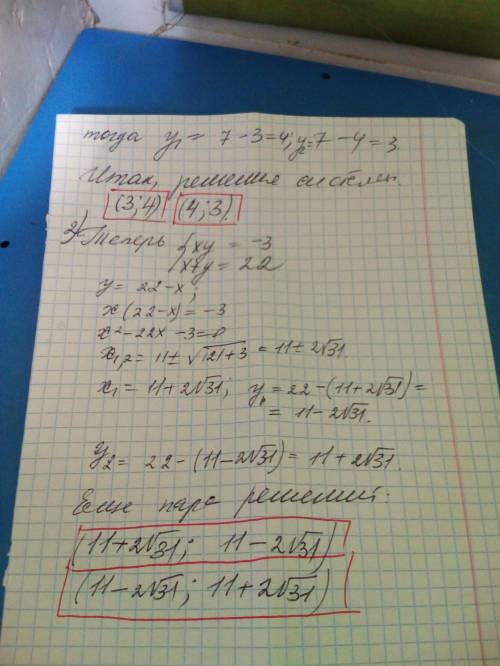 тогда y₁ = 7 - 3 = 4; y₂ = 7 - 4 = 3
Итак, решения системы
(3; 4) (4; 3).
2) Теперь { xy = -3
x+y = 22
y = 22 - x;
x(22-x) = -3
x² - 22x - 3 = 0
x₁,₂ = 11 ± √121+3 = 11 ± 2√31.
x₁ = 11+2√31; y₁ = 22 - (11+2√31) =
= 11 - 2√31.
y₂ = 22 - (11-2√31) = 11 + 2√31.
пара решений:
(11+2√31; 11-2√31)
(11-2√31; 11+2√31)